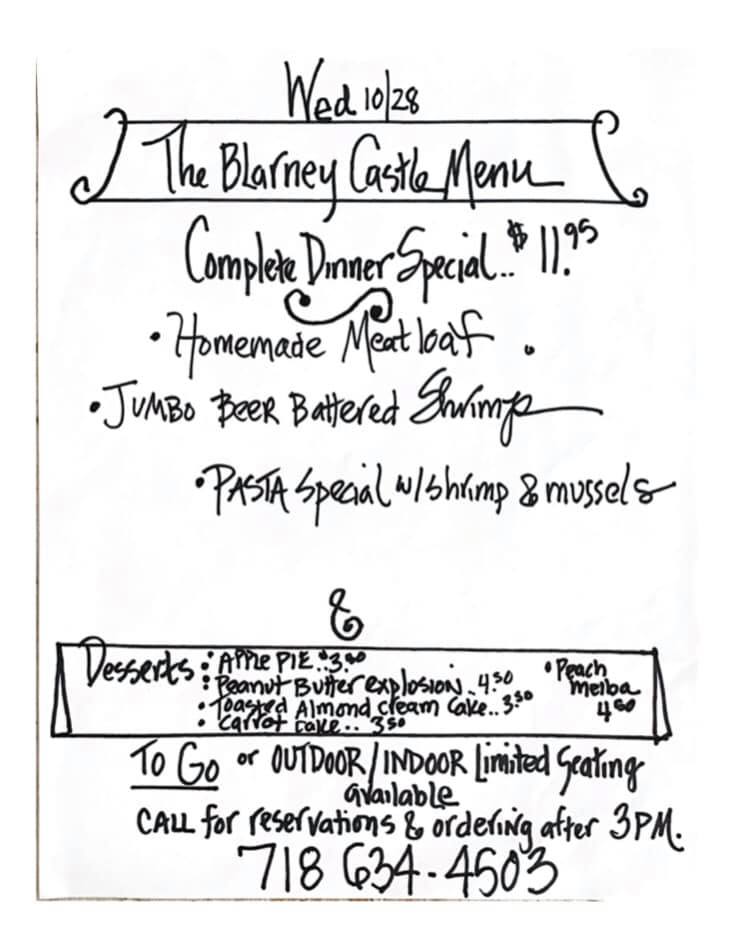 Wed 10/28
The Blarney Castle Menu
Complete Dinner Special.. $11.95
• Homemade Meatloaf .
• JUMBO BEER BATTERED Shrimp
• PASTA Special w/shrimp & mussels
&
Desserts: • APPLE PIE..$3.50
• Peanut Butter explosion..4.50
• Toasted Almond cream Cake..3.50
• Carrot cake.. 3.50
• Peach
melba
4.50
To Go or OUTDOOR/INDOOR Limited Seating
available
CALL for reservations & ordering after 3PM.
718 634-4503